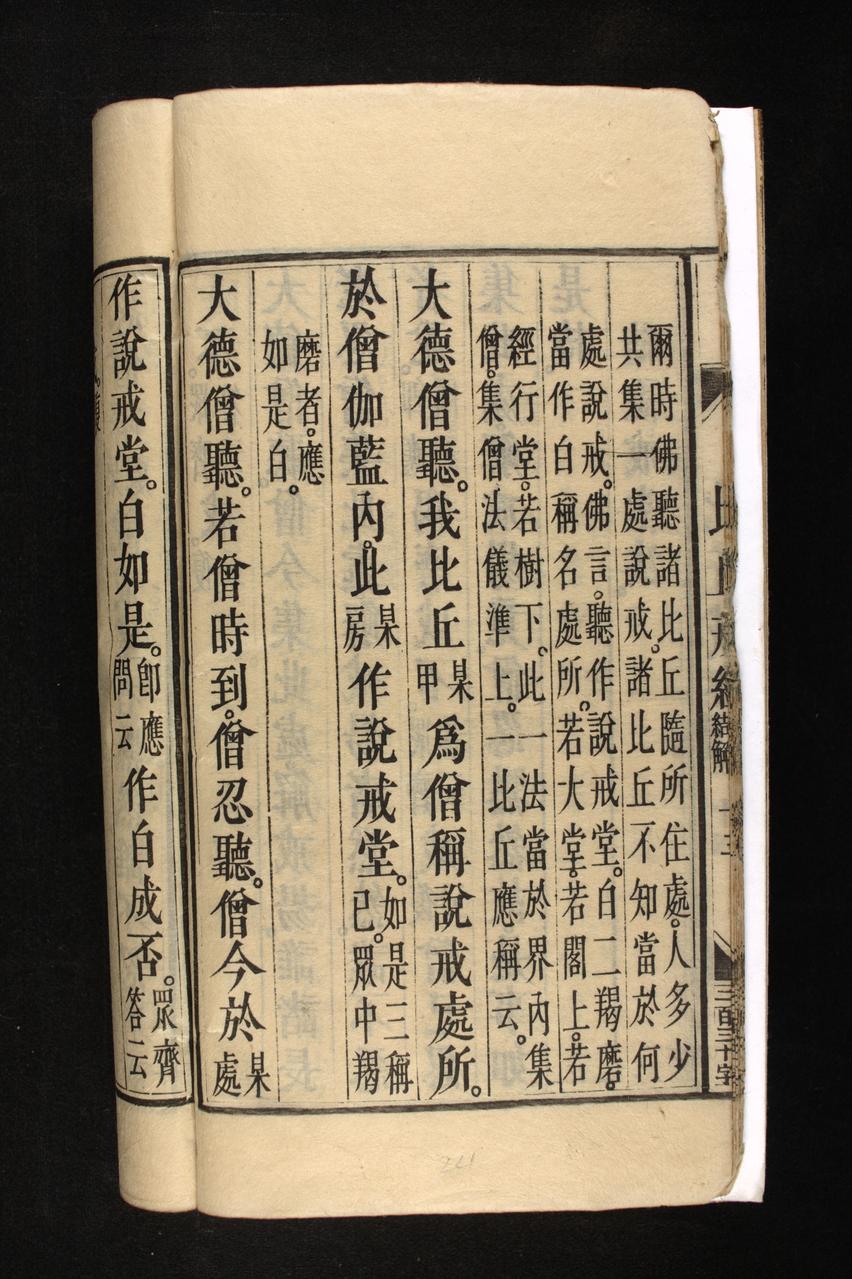 比丘戒
結解
十三
三百三十字
爾時佛聽諸比丘隨所住處。人多少
共集一處說戒。諸比丘不知當於何
處說戒。佛言。聽作說戒堂。白二羯磨。
當作白稱名處所。若大堂。若閣上。若
經行堂。若樹下。此一法當於界內集
僧。集僧法儀準上。一比丘應稱云。
大德僧聽。我比丘某甲爲僧稱說戒處所。
於僧伽藍內。此某房作說戒堂。如是三稱已。眾中羯
磨者。應
如是白。
大德僧聽。若僧時到。僧忍聽。僧今於某處
作說戒堂。白如是。卽應問云作白成否。眾齊答云